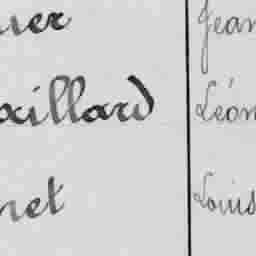 uer Jean
aillard Léon
net Louis